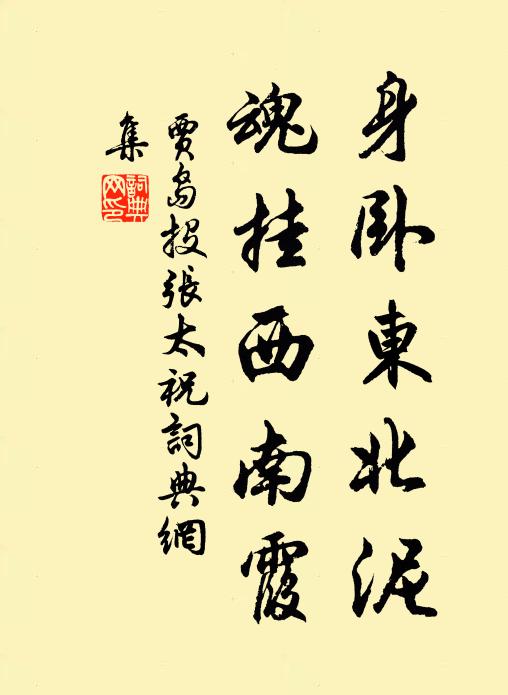 身卧東北泥
魂挂西南霞
賈島投張太祝詞典網
集
詞典
网印